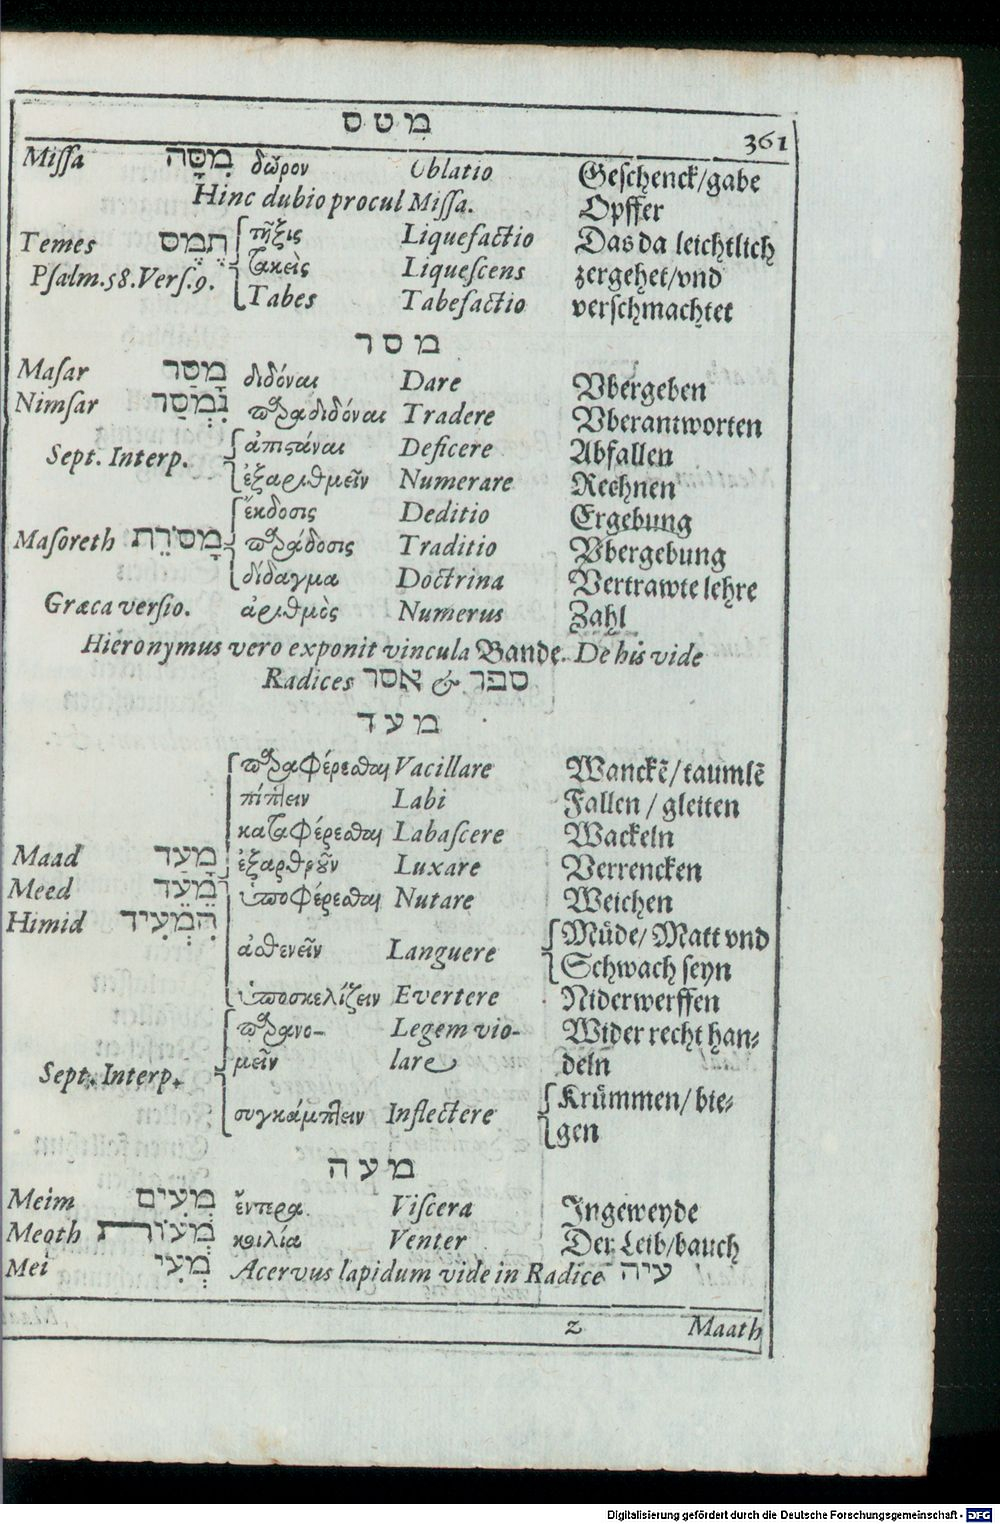 מ ט ס
361
Miſſa מִסָּה δῶρον Oblatio Geſchenck/gabe
Hinc dubio procul Miſſa. Opffer
Temes תֶּמֶס πῆξις Liquefactio Das da leichtlich
Pſalm. 58. Verſ. 9. τακεὶς Liqueſcens zergehet/vnd
Tabes Tabefactio verſchmachtet
מ ס ר
Maſar מָסַר διδόναι Dare Vbergeben
Nimſar נִמְסַר παραδιδόναι Tradere Vberantworten
Sept. Interp. ἀπιστάναι Deficere Abfallen
ἐξαριθμεῖν Numerare Rechnen
ἔκδοσις Deditio Ergebung
Maſoreth מָסֹרֶת παράδοσις Traditio Vbergebung
δίδαγμα Doctrina Vertrawte lehre
Græca verſio. ἀριθμὸς Numerus Zahl
Hieronymus vero exponit vincula Bande. De his vide
Radices אסר & ספר
מ ע ד
παραφέρεσθαι Vacillare Wanckẽ/taumlẽ
πίπτειν Labi Fallen / gleiten
καταφέρεσθαι Labaſcere Wackeln
Maad מָעַד ἐξαρθροῦν Luxare Verrencken
Meed מֵעֵד ὑποφέρεσθαι Nutare Weichen
Himid הִמְעִיד ἀσθενεῖν Languere Müde/ Matt vnd
Schwach ſeyn
ὑποσκελίζειν Evertere Niderwerffen
παρανο- Legem vio- Wider recht han-
Sept. Interp. μεῖν lare deln
συγκάμπτειν Inflectere Krümmen/ bie-
gen
מ ע ה
Meim מֵעִים ἔντερα Viſcera Ingeweyde
Meoth מְעוֹת κοιλία Venter Der Leib/bauch
Mei מְעִי Acervus lapidum vide in Radice עיה
z Maath
Digitalisierung gefördert durch die Deutsche Forschungsgemeinschaft - DFG